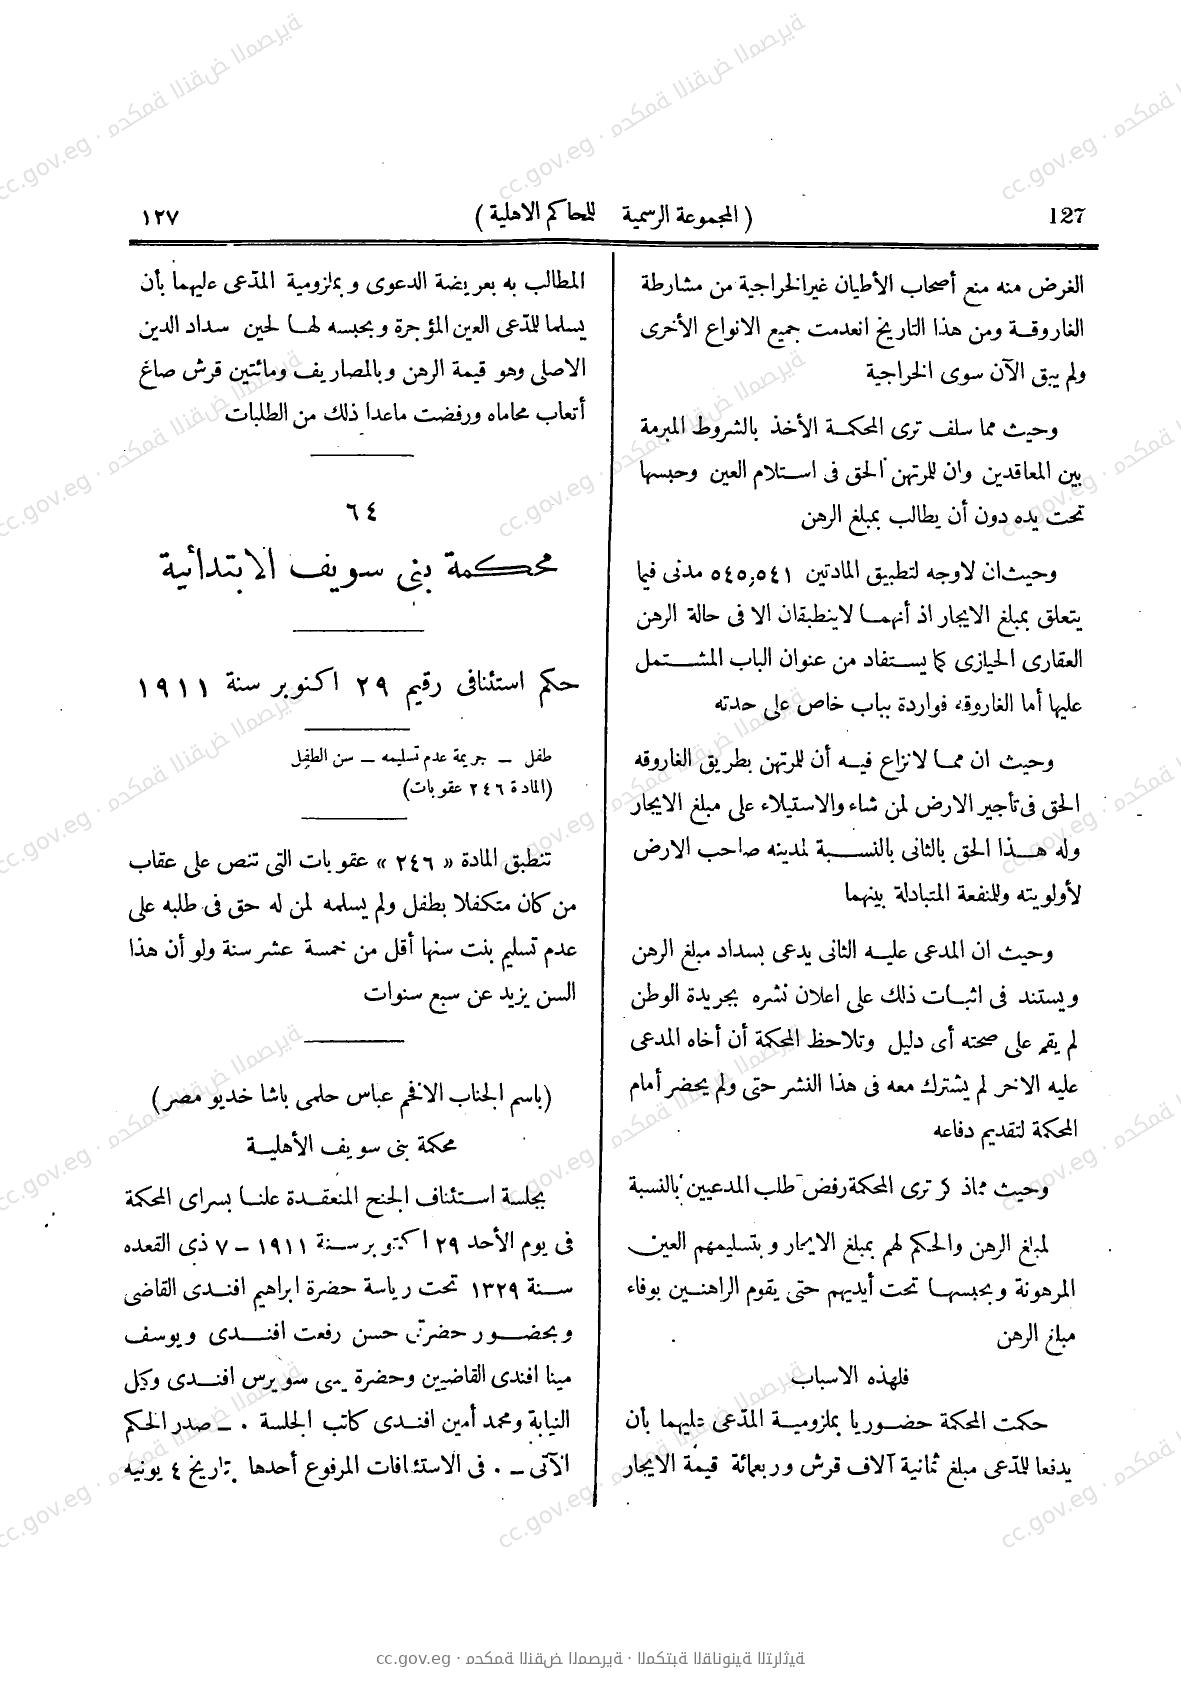 127 ( المجموعة الرسمية للمحاكم الاهلية ) ١٢٧
الغرض منه منع أصحاب الأطيان غير الخراجية من مشارطة
الغاروقة ومن هذا التاريخ انعدمت جميع الانواع الأخرى
ولم يبق الآن سوى الخراجية
وحيث مما سلف ترى المحكمة الأخذ بالشروط المبرمة
بين المعاقدين وان للمرتهن الحق فى استلام العين وحبسها
تحت يده دون أن يطالب بمبلغ الرهن
وحيث ان لاوجه لتطبيق المادتين ٥٤١ و ٥٤٥ مدنى فيما
يتعلق بمبلغ الايجار اذ أنهما لاينطبقان الا فى حالة الرهن
العقارى الحيازى كما يستفاد من عنوان الباب المشتمل
عليها أما الغاروقه فواردة بباب خاص على حدته
وحيث ان مما لانزاع فيه أن للمرتهن بطريق الغاروقه
الحق فى تأجير الارض لمن شاء والاستيلاء على مبلغ الايجار
وله هذا الحق بالثانى بالنسبة لمدينه صاحب الارض
لأولويته وللمنفعة المتبادلة بينهما
وحيث ان المدعى عليه الثانى يدعى بسداد مبلغ الرهن
ويستند فى اثبات ذلك على اعلان نشره بجريدة الوطن
لم يقم على صحته أى دليل وتلاحظ المحكمة أن أخاه المدعى
عليه الاخر لم يشترك معه فى هذا النشر حتى ولم يحضر أمام
المحكمة لتقديم دفاعه
وحيث مماذ كر ترى المحكمة رفض طلب المدعيين بالنسبة
لمبلغ الرهن والحكم لهم بمبلغ الايجار وبتسليمهم العين
المرهونة وبحبسها تحت أيديهم حتى يقوم الراهنين بوفاء
مبلغ الرهن
فلهذه الاسباب
حكمت المحكمة حضوريا بملزومية المدّعى عليهما بأن
يدفعا للمدّعى مبلغ ثمانية آلاف قرش وربعمائة قيمة الايجار
المطالب به بعريضة الدعوى وبملزومية المدّعى عليهما بأن
يسلما للمدّعى العين المؤجرة وبحبسه لها لحين سداد الدين
الاصلى وهو قيمة الرهن وبالمصاريف ومائتين قرش صاغ
أتعاب محاماه ورفضت ماعدا ذلك من الطلبات
٦٤
محكمة بنى سويف الابتدائية
حكم استئنافى رقيم ٢٩ اكتوبر سنة ١٩١١
طفل – جريمة عدم تسليمه – سن الطفل
(المادة ٢٤٦ عقوبات)
تنطبق المادة « ٢٤٦ » عقوبات التى تنص على عقاب
من كان متكفلا بطفل ولم يسلمه لمن له حق فى طلبه على
عدم تسليم بنت سنها أقل من خمسة عشر سنة ولو أن هذا
السن يزيد عن سبع سنوات
(باسم الجناب الافخم عباس حلمى باشا خديو مصر)
محكمة بنى سويف الأهلية
بجلسة استئناف الجنح المنعقدة علنا بسراى المحكمة
فى يوم الأحد ٢٩ اكتوبر سنة ١٩١١ – ٧ ذى القعده
سنة ١٣٢٩ تحت رياسة حضرة ابراهيم افندى القاضى
وبحضور حضرتى حسن رفعت افندى ويوسف
مينا افندى القاضيين وحضرة يسى سويرس افندى وكيل
النيابة ومحمد أمين افندى كاتب الجلسة . – صدر الحكم
الآتى – . فى الاستئنافات المرفوع أحدها بتاريخ ٤ يونيه
cc.gov.eg · محكمة النقض المصرية · المكتبة القانونية التراثية